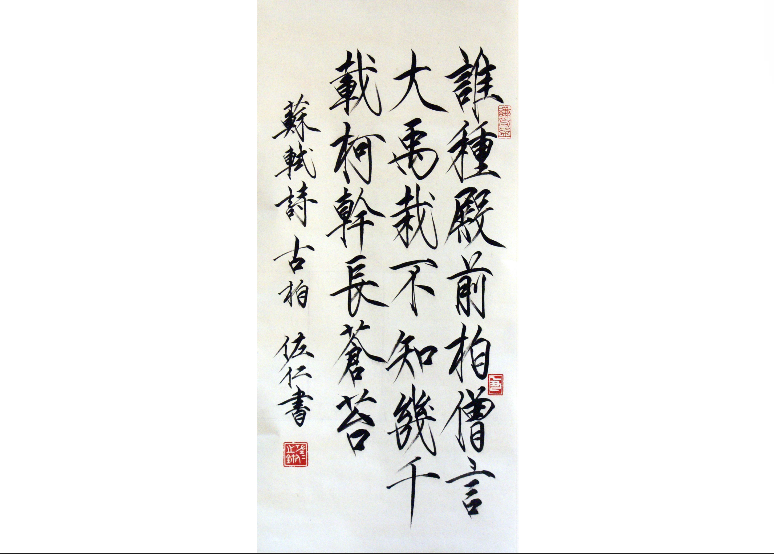 誰種殿前柏僧言
大禹栽不知幾千
載柯幹長蒼苔
蘇軾詩古柏 佐仁書